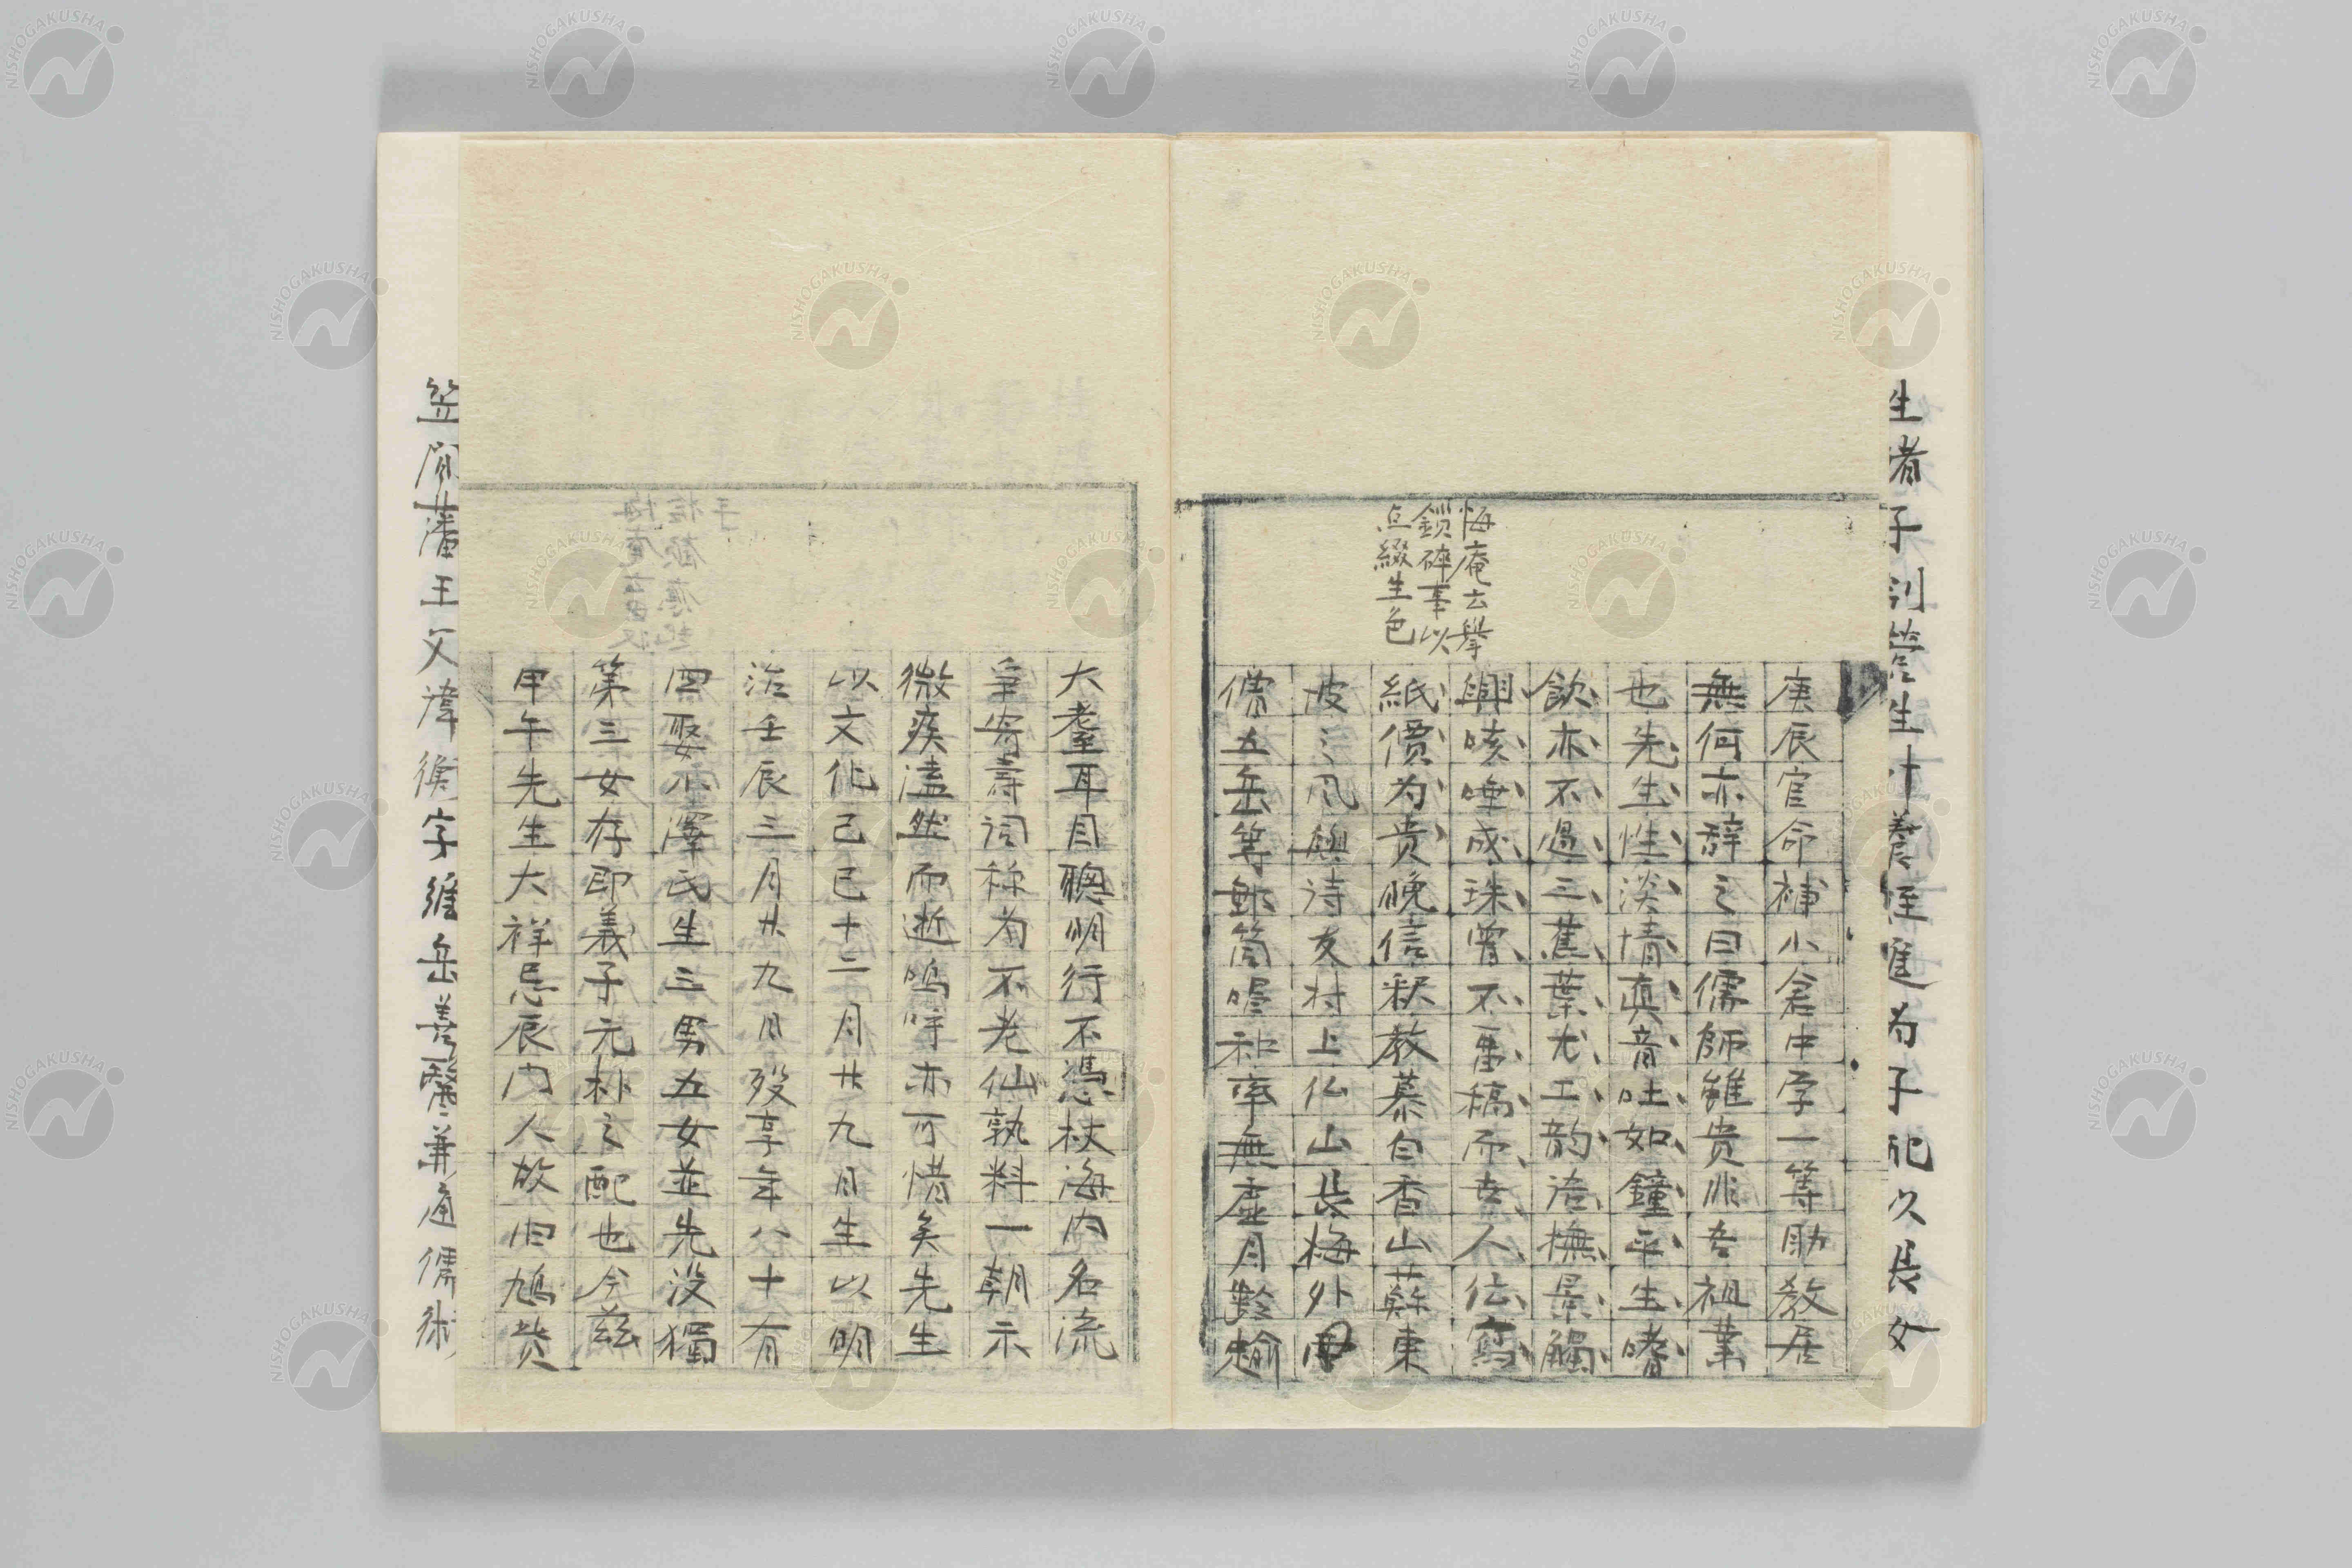 生者子則管生十養姪進为子配久長女
悔庵云擧
鎖碎事以
点綴生色
庚辰官命補小倉中学一等助教居
無何亦辞之曰儒師雖贵非吾祖業
也先生性淡情真音吐如鐘平生嗜
飲亦不過三蕉葉尤工韵語撫景觸
興咳唾成珠曾不留稿而去人伝寫
紙價为贵晩信釈教慕白香山蘇東
坡之風與詩友村上仏山長梅外
僧五岳等郵筒唱和率無虚月齢踰
大耋耳目聰明行不憑杖海内名流
争寄壽詞称为不老仙孰料一朝示
微疾溘然而逝嗚呼亦可惜矣先生
以文化己巳十二月廿九日生以明
治壬辰三月廿九日歿享年八十有
四娶小澤氏生三男五女並先没獨
第三女存即義子元朴之配也今茲
甲午先生大祥忌辰门人故旧鳩貲
笠间藩王父諱衡字維岳善醫兼通儒術
NISHOGAKUSHA